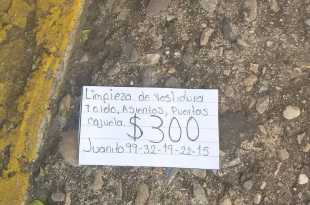 Limpieza de Vestidura
Toldo, Asientos, Puertas
Cajuela. $300
Juanito 99-32-19-22-15